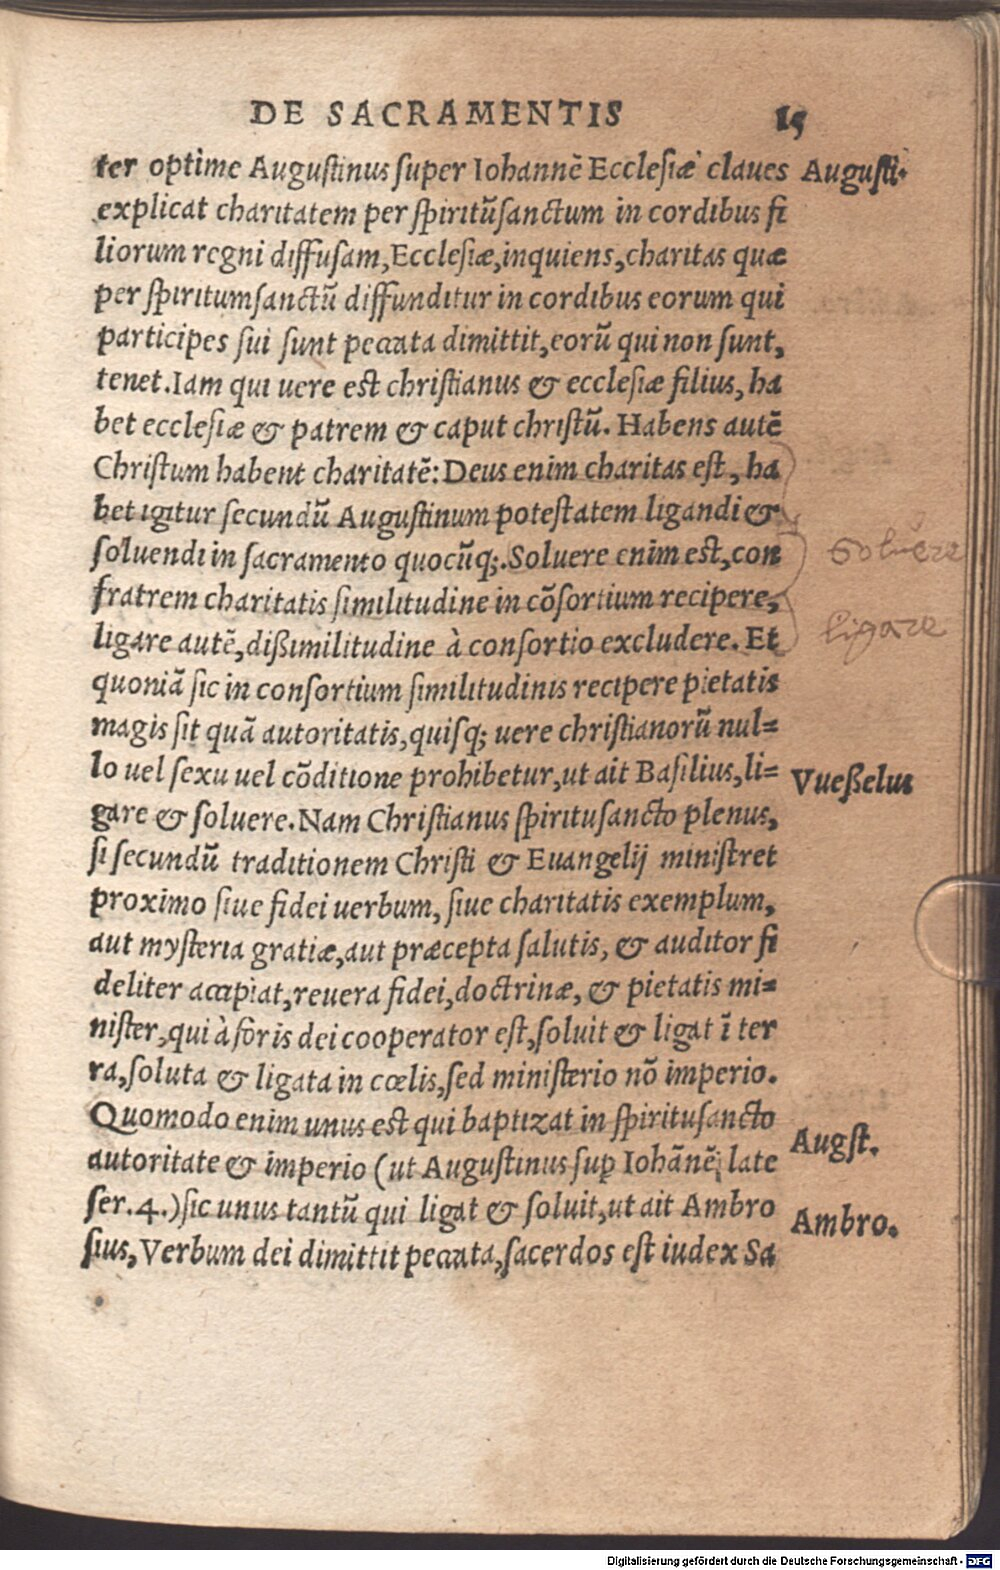 DE SACRAMENTIS 15
ter optime Augustinus super Iohannē Ecclesiæ claues Augusti.
explicat charitatem per spiritūsanctum in cordibus fi
liorum regni diffusam, Ecclesiæ, inquiens, charitas quæ
per spiritumsanctū diffunditur in cordibus eorum qui
participes sui sunt peccata dimittit, eorū qui non sunt,
tenet. Iam qui uere est christianus & ecclesiæ filius, ha
bet ecclesiæ & patrem & caput christū. Habens autē
Christum habent charitatē: Deus enim charitas est, ha
bet igitur secundū Augustinum potestatem ligandi &
soluendi in sacramento quocūq;. Soluere enim est, con
soluere
fratrem charitatis similitudine in cōsortium recipere,
ligare autē, dißimilitudine à consortio excludere. Et
ligare
quoniā sic in consortium similitudinis recipere pietatis
magis sit quā autoritatis, quisq; uere christianorū nul=
lo uel sexu uel cōditione prohibetur, ut ait Basilius, li= Vueßelus
gare & soluere. Nam Christianus spiritusancto plenus,
si secundū traditionem Christi & Euangelij ministret
proximo siue fidei uerbum, siue charitatis exemplum,
aut mysteria gratiæ, aut præcepta salutis, & auditor fi
deliter accipiat, reuera fidei, doctrinæ, & pietatis mi=
nister, qui à foris dei cooperator est, soluit & ligat ī ter
ra, soluta & ligata in cœlis, sed ministerio nō imperio.
Quomodo enim unus est qui baptizat in spiritusancto
autoritate & imperio (ut Augustinus suꝑ Iohānē, late Augst.
ser. 4.) sic unus tantū qui ligat & soluit, ut ait Ambro Ambro.
sius, Verbum dei dimittit peccata, sacerdos est iudex Sa
Digitalisierung gefördert durch die Deutsche Forschungsgemeinschaft - DFG